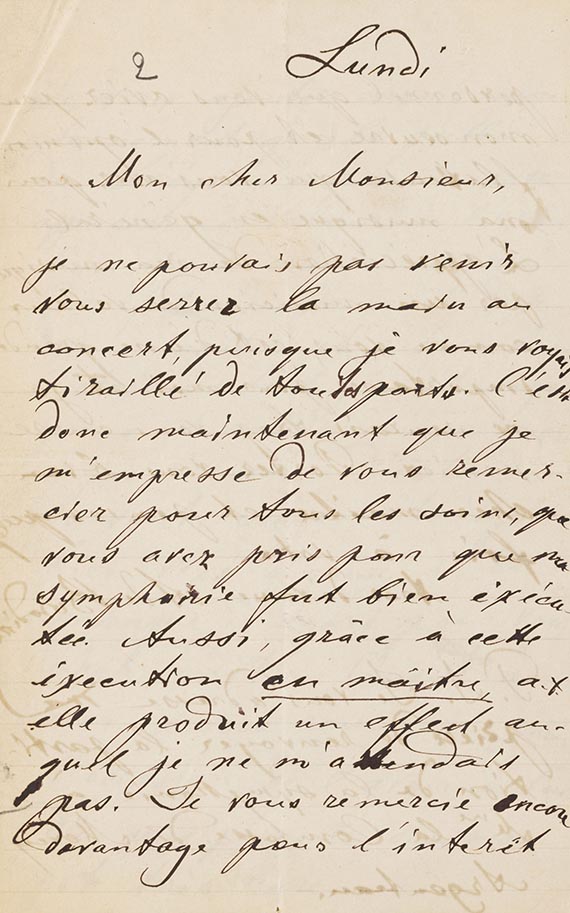 2
Lundi
Mon cher Monsieur,
je ne pouvais pas venir
vous serrer la main au
concert, puisque je vous voyais
tiraillé de touts parts. C'est
donc maintenant que je
m'empresse de vous remer-
cier pour tous les soins, que
vous avez pris pour que ma
symphonie fut bien éxécu-
tée. Aussi, grâce à cette
éxecution en maître, a-t
elle produit un effect au-
quel je ne m'attendais
pas. Je vous remercie encore
davantage pour l'interêt